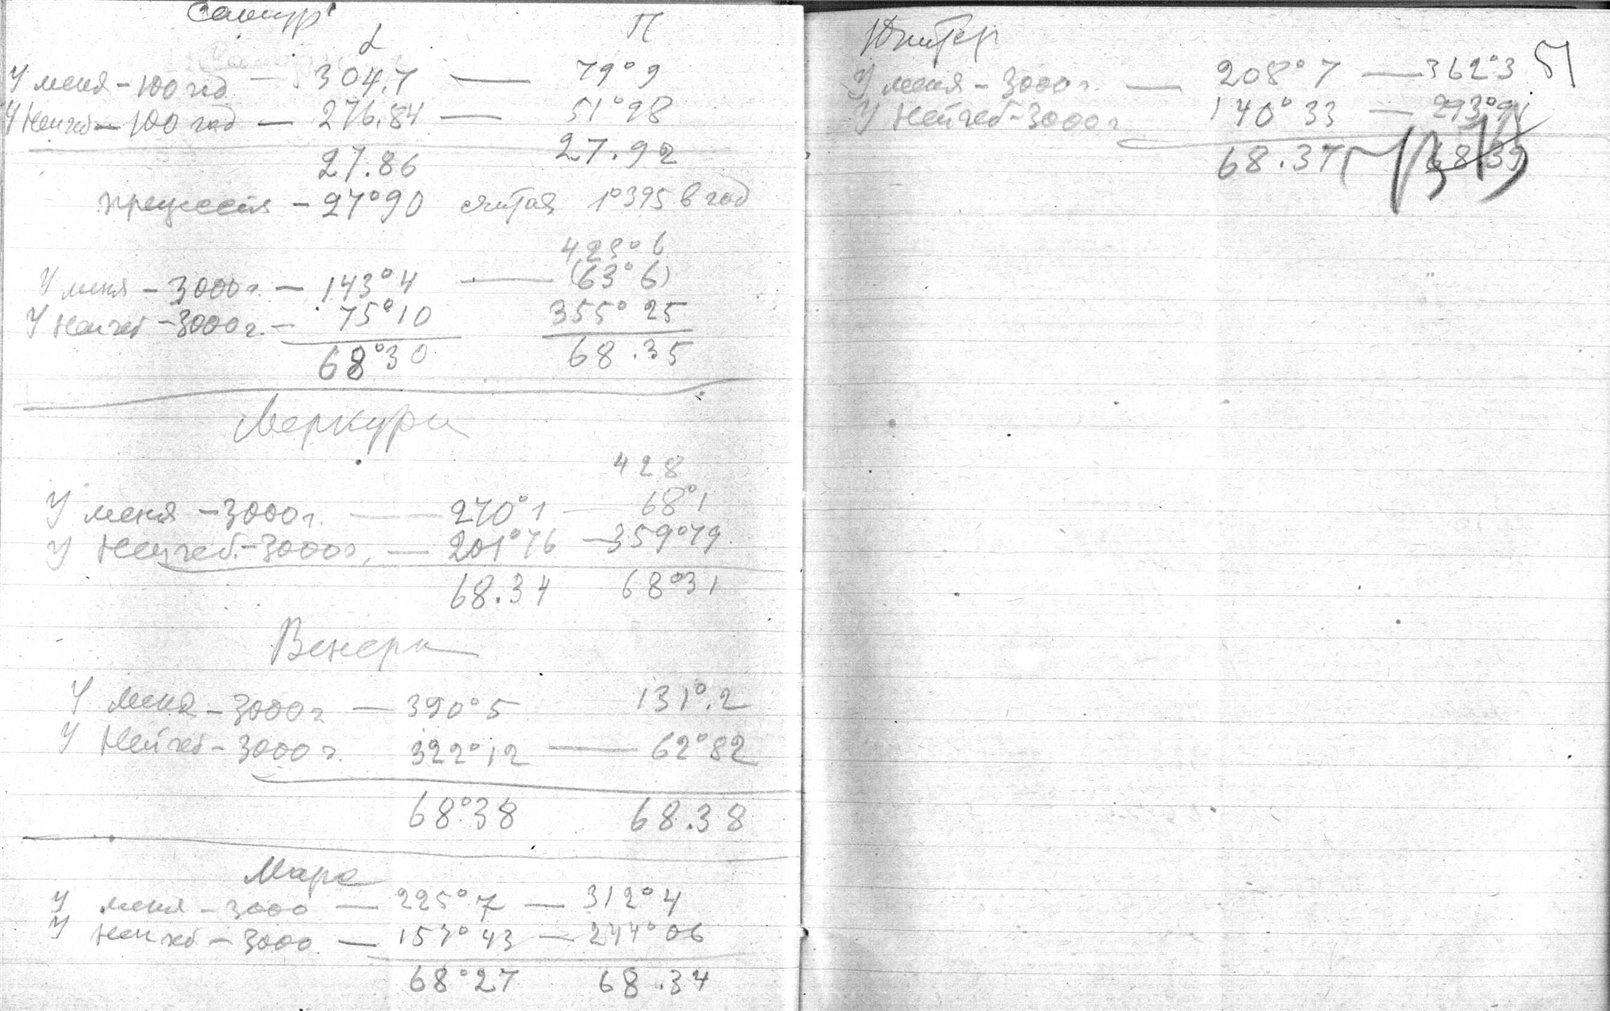 Сатурн
☊ П
У меня – 100 год – 304.7 — 79°9
У Нейгеб – 100 год – 276.84 — 51°98
27.86 27.92
прецессия – 27°90 считая 1°395 в год
423°6
У меня – 3000 г. – 143°4 — (63°6)
У Нейгеб – 3000 г. – 75°10 355°25
68°30 68.35
Меркурий
428
У меня – 3000 г. — 270°1 — 68°1
У Нейгеб. – 3000 г. — 201°76 – 359°79
68.34 68°31
Венера
У меня – 3000 г — 390°5 131°.2
У Нейгеб – 3000 г. 322°12 — 62°82
68°38 68.38
Марс
У меня – 3000 — 225°7 — 312°4
У Нейгеб – 3000 — 157°43 — 244°06
68°27 68.34
51
Юпитер
У меня – 3000 г. — 208°7 — 362°3
У Нейгеб – 3000 г 140°33 — 293°91
68.37 68.39